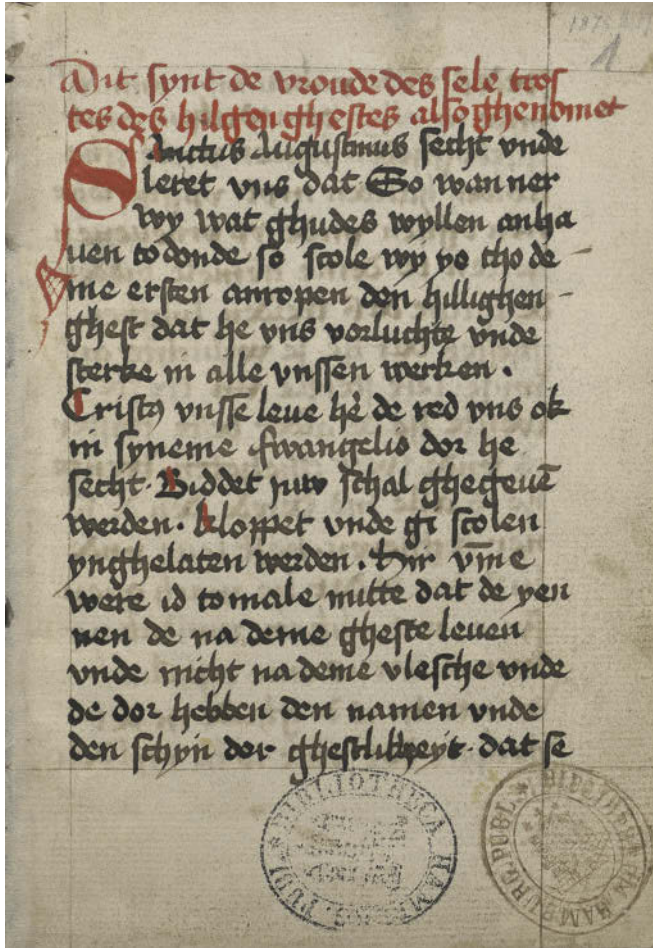 1
Dit synt de vroude des sele tros
tes des hilgen ghestes also ghenomet
Sanctus Augustinus secht vnde
leret vns dat So wanner
wy wat ghudes wyllen anha
uen to donde so scole wy yo tho de
me ersten anropen den hillighen
ghest dat he vns vorluchte vnde
sterke in alle vnssen werken .
Cristꝯ vnsse leue he᷑ de red vns ok
in syneme ewangelio dor he
secht . Biddet juw schal ghegeuē
werden . kloppet vnde gi scolen
ynghelaten werden . Hir vm̄e
were id to male nutte dat de yen
nen de na deme gheste leuen
vnde nicht na deme vlesche vnde
de dor hebben den namen vnde
den schyn der ghestlikheyt . dat se
BIBLIOTHECA HAMBURG. PUBL.
BIBLIOTHECA HAMBURG. PUBL.